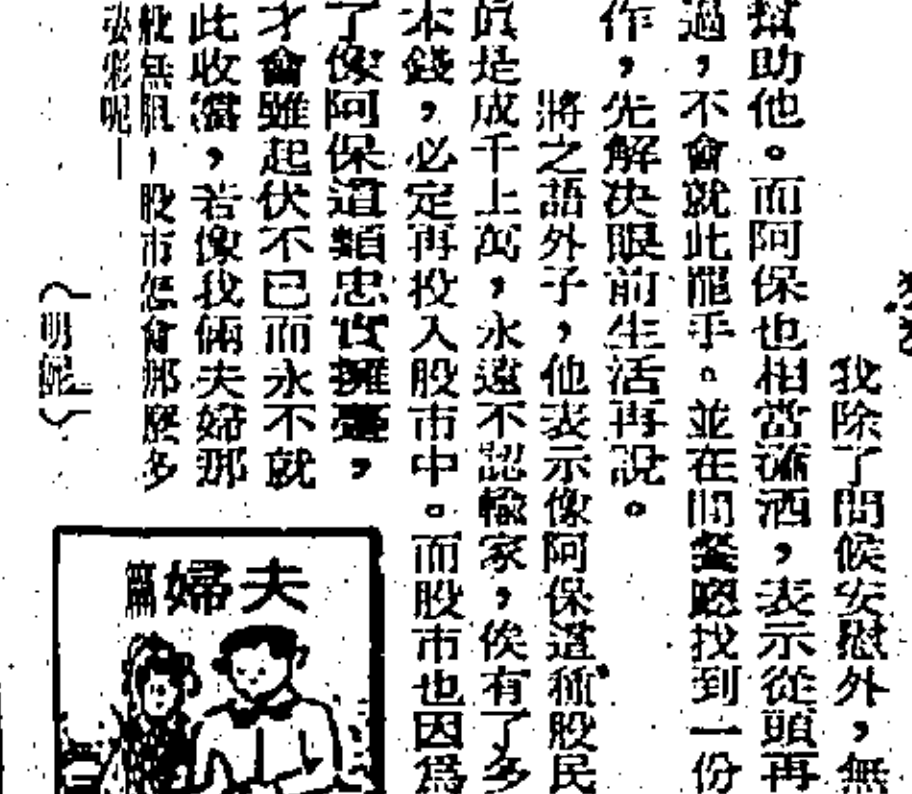 我除了問候安慰外，無
幫助他。而阿保也相當瀟洒，表示從頭再
過，不會就此罷手。並在間餐廳找到一份
作，先解決眼前生活再說。
將之語外子，他表示像阿保這種股民
眞是成千上萬，永遠不認輸家，俟有了多
本錢，必定再投入股市中。而股市也因爲
了像阿保這類忠實擁躉，
才會雖起伏不已而永不就
此收濳，若像我倆夫婦那
般無胆，股市怎會那麽多
姿彩呢—
（明儀）
夫婦篇